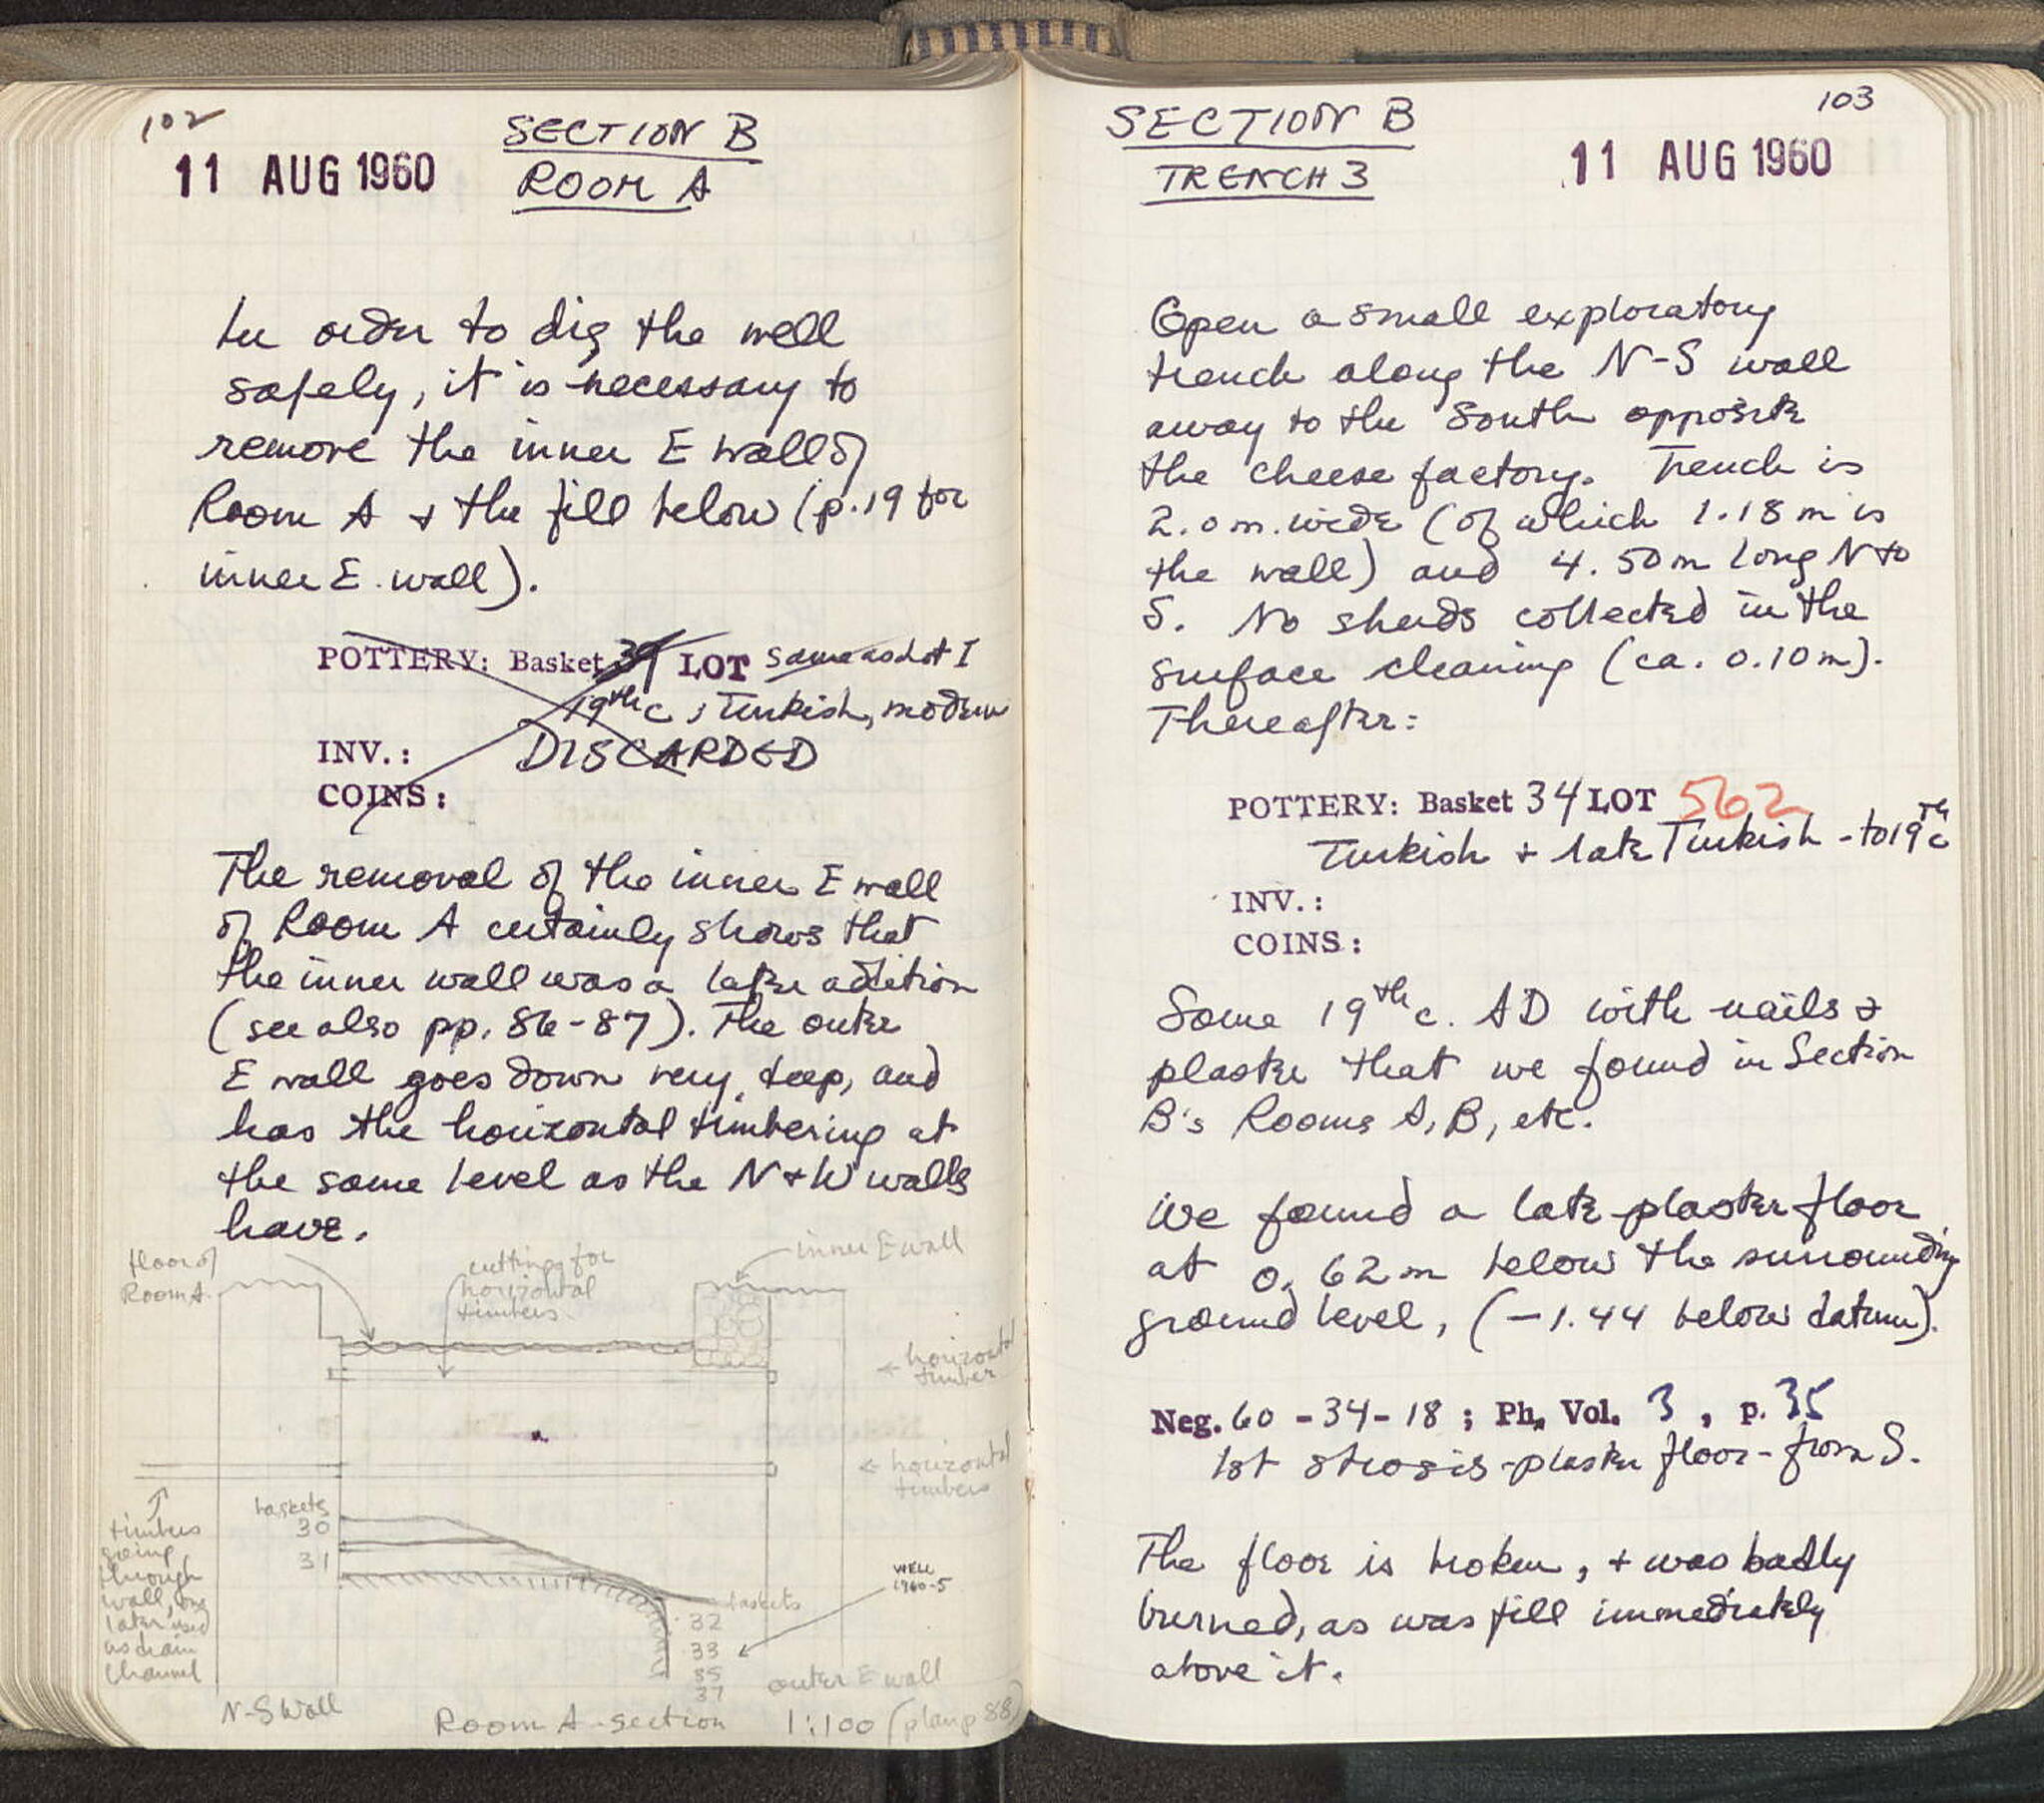 102
11 AUG 1960
SECTION B
ROOM A
In order to dig the well
safely, it is necessary to
remove the inner E wall of
Room A + the fill below (p. 19 for
inner E. wall).
POTTERY: Basket 39 LOT same as Lot I
19th c; Turkish, modern
INV.: DISCARDED
COINS:
The removal of the inner E wall
of Room A certainly shows that
the inner wall was a later addition
(see also pp. 86-87). The outer
E wall goes down very deep, and
has the horizontal timbering at
the same level as the N + W walls
have.
floor of
Room A.
cuttings for
horizontal
timbers
inner E wall
horizontal
timber
horizontal
timbers
baskets
30
31
timbers
going
through
wall, one
later used
as drain
channel
WELL
1960-5
baskets
32
33
35
37
outer E wall
N-S Wall
Room A - section 1:100 (plan p 88)
103
SECTION B
TRENCH 3
11 AUG 1960
Open a small exploratory
trench along the N-S wall
away to the South opposite
the cheese factory. Trench is
2.0 m. wide (of which 1.18 m is
the wall) and 4.50 m long N to
S. No sherds collected in the
surface cleaning (ca. 0.10 m).
Thereafter:
POTTERY: Basket 34 LOT 562
Turkish + late Turkish - to 19th c
INV.:
COINS:
Some 19th c. AD with nails +
plaster that we found in Section
B's Rooms A, B, etc.
We found a late plaster floor
at 0.62 m below the surrounding
ground level, (-1.44 below datum).
Neg. 60 - 34 - 18 ; Ph. Vol. 3 , p. 35
1st strosis - plaster floor - from S.
The floor is broken, + was badly
burned, as was fill immediately
above it.